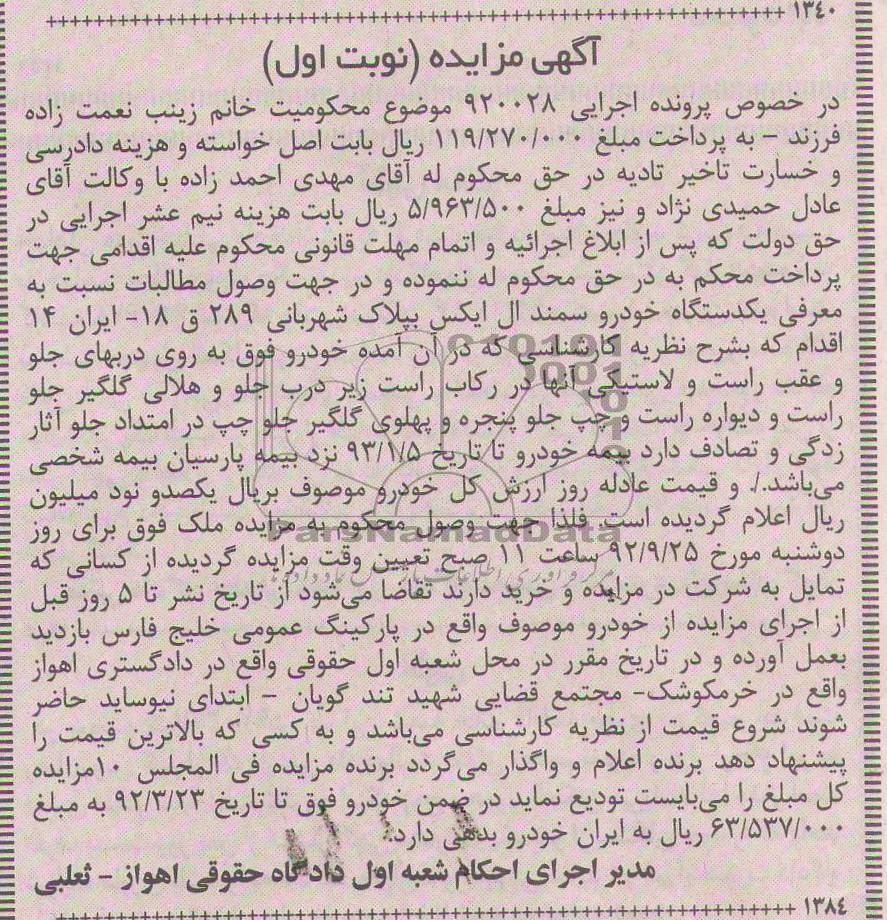 ۱۳۴۰
آگهی مزایده (نوبت اول)
در خصوص پرونده اجرایی ۹۲۰۰۲۸ موضوع محکومیت خانم زینب نعمت زاده
فرزند – به پرداخت مبلغ ۱۱۹/۲۷۰/۰۰۰ ریال بابت اصل خواسته و هزینه دادرسی
و خسارت تاخیر تادیه در حق محکوم له آقای مهدی احمد زاده با وکالت آقای
عادل حمیدی نژاد و نیز مبلغ ۵/۹۶۳/۵۰۰ ریال بابت هزینه نیم عشر اجرایی در
حق دولت که پس از ابلاغ اجرائیه و اتمام مهلت قانونی محکوم علیه اقدامی جهت
پرداخت محکم به در حق محکوم له ننموده و در جهت وصول مطالبات نسبت به
معرفی یکدستگاه خودرو سمند ال ایکس بپلاک شهربانی ۲۸۹ ق ۱۸- ایران ۱۴
اقدام که بشرح نظریه کارشناسی که در آن آمده خودرو فوق به روی دربهای جلو
و عقب راست و لاستیکی آنها در رکاب راست زیر درب جلو و هلالی گلگیر جلو
راست و دیواره راست و چپ جلو پنجره و پهلوی گلگیر جلو چپ در امتداد جلو آثار
زدگی و تصادف دارد بیمه خودرو تا تاریخ ۹۳/۱/۵ نزد بیمه پارسیان بیمه شخصی
می‌باشد./. و قیمت عادله روز ارزش کل خودرو موصوف بریال یکصدو نود میلیون
ریال اعلام گردیده است. فلذا جهت وصول محکوم به مزایده ملک فوق برای روز
دوشنبه مورخ ۹۲/۹/۲۵ ساعت ۱۱ صبح تعیین وقت مزایده گردیده از کسانی که
تمایل به شرکت در مزایده و خرید دارند تقاضا می‌شود از تاریخ نشر تا ۵ روز قبل
از اجرای مزایده از خودرو موصوف واقع در پارکینگ عمومی خلیج فارس بازدید
بعمل آورده و در تاریخ مقرر در محل شعبه اول حقوقی واقع در دادگستری اهواز
واقع در خرمکوشک- مجتمع قضایی شهید تند گویان – ابتدای نیوساید حاضر
شوند شروع قیمت از نظریه کارشناسی می‌باشد و به کسی که بالاترین قیمت را
پیشنهاد دهد برنده اعلام و واگذار می‌گردد برنده مزایده فی المجلس ۱۰مزایده
کل مبلغ را می‌بایست تودیع نماید در ضمن خودرو فوق تا تاریخ ۹۲/۳/۲۳ به مبلغ
۶۳/۵۳۷/۰۰۰ ریال به ایران خودرو بدهی دارد.
مدیر اجرای احکام شعبه اول دادگاه حقوقی اهواز – ثعلبی
۱۳۸۴
ParsNamadData